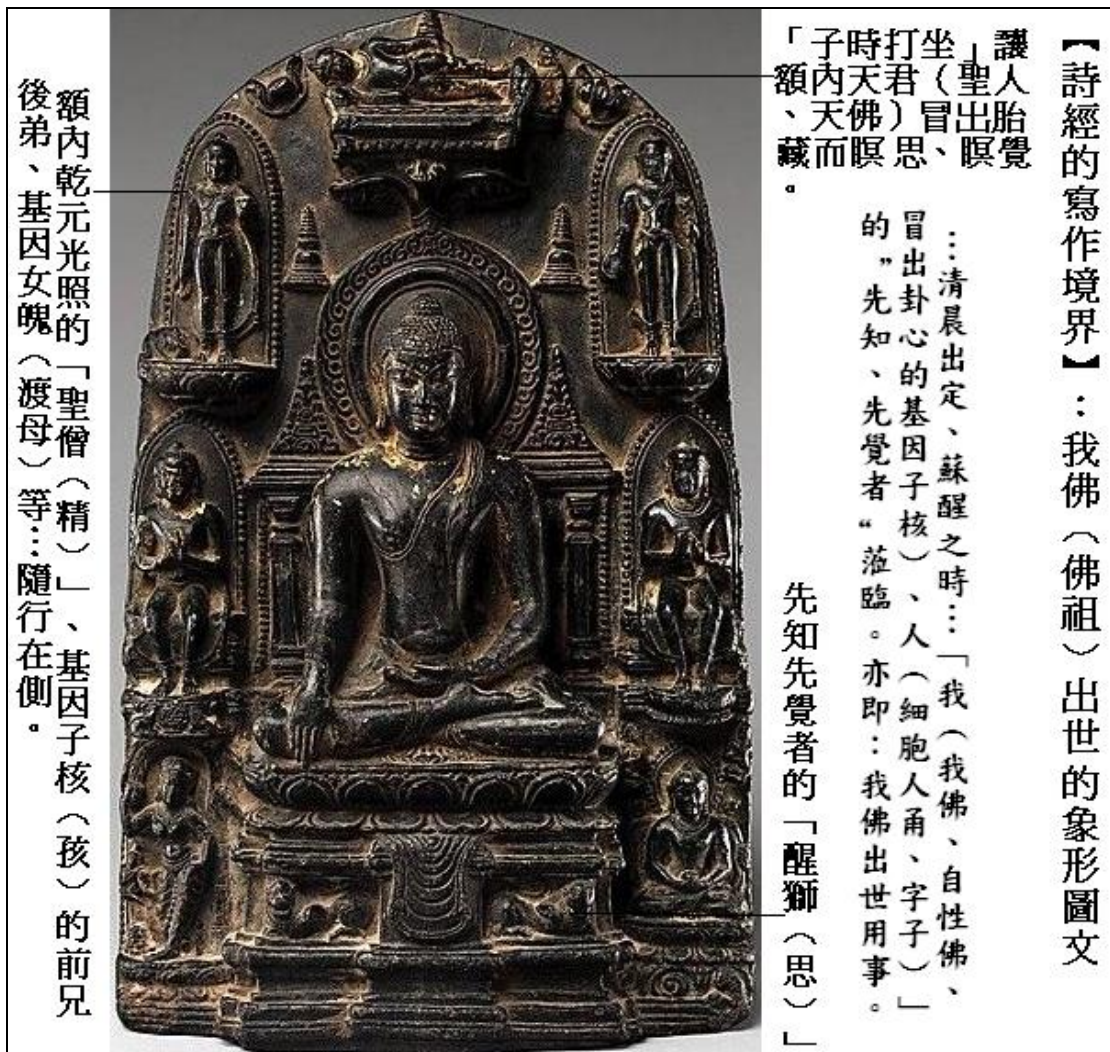 【詩經的寫作境界】:我佛(佛祖)出世的象形圖文
「子時打坐」讓
額內天君(聖人
、天佛)冒出胎
藏而瞑思、瞑覺
。
…清晨出定、蘇醒之時…「我(我佛、自性佛、
冒出卦心的基因子核)、人(細胞人甬、字子)」
的”先知、先覺者“蒞臨。亦即:我佛出世用事。
先知先覺者的「醒獅(思)」
額內乾元光照的「聖僧(精)」、基因子核(孩)的前兄
後弟、基因女魄(渡母)等…隨行在側。